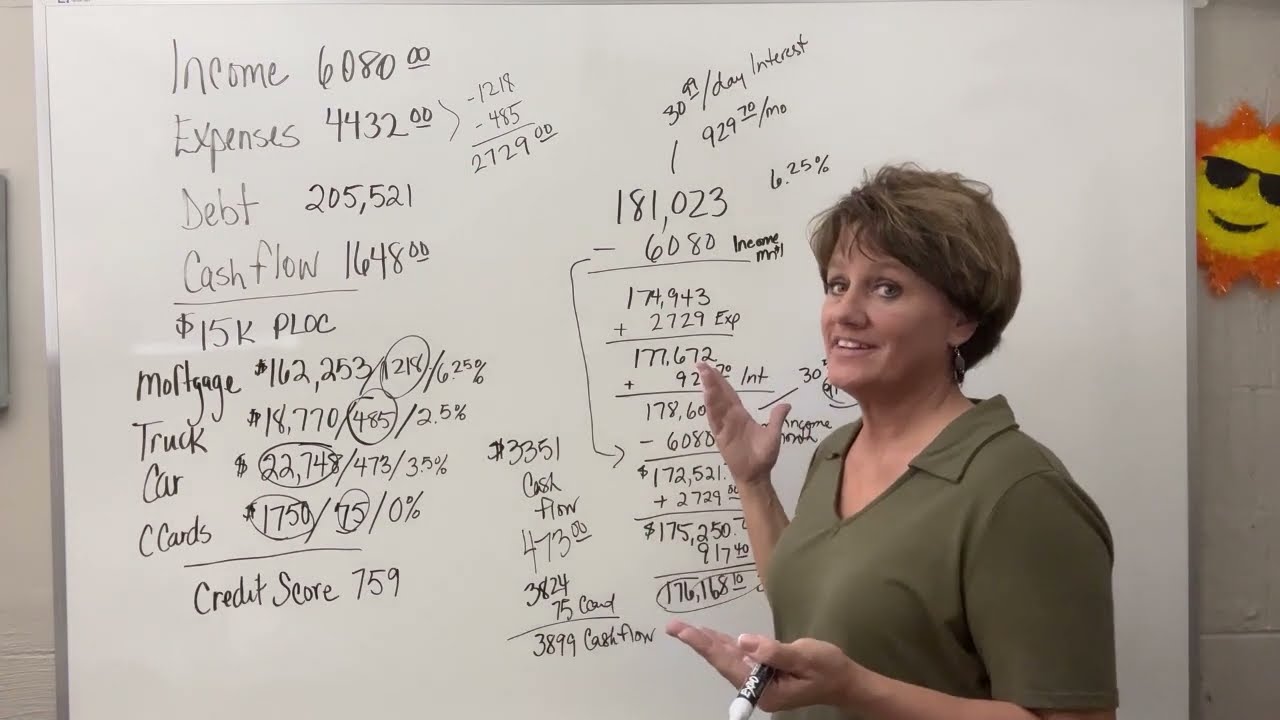 Income 6080 00
Expenses 4432 00
-1218
-485
2729 00
Debt 205,521
Cashflow 1648 00
$15K PLOC
Mortgage $162,253/1218/6.25%
Truck $18,770/485/2.5%
Car $22,748/473/3.5%
CCards $1750/75/0%
Credit Score 759
$3351
Cash
flow
473 00
3824
75 Card
3899 Cashflow
30 99/day Interest
929 70/mo
6.25%
181,023
- 6080 Income
174,943
+ 2729 Exp
177,672
+ 92 70 Int
178,60
- 6080 Income
$172,521.
+ 2729
$175,250.
917 40
176,168 10
EXPO